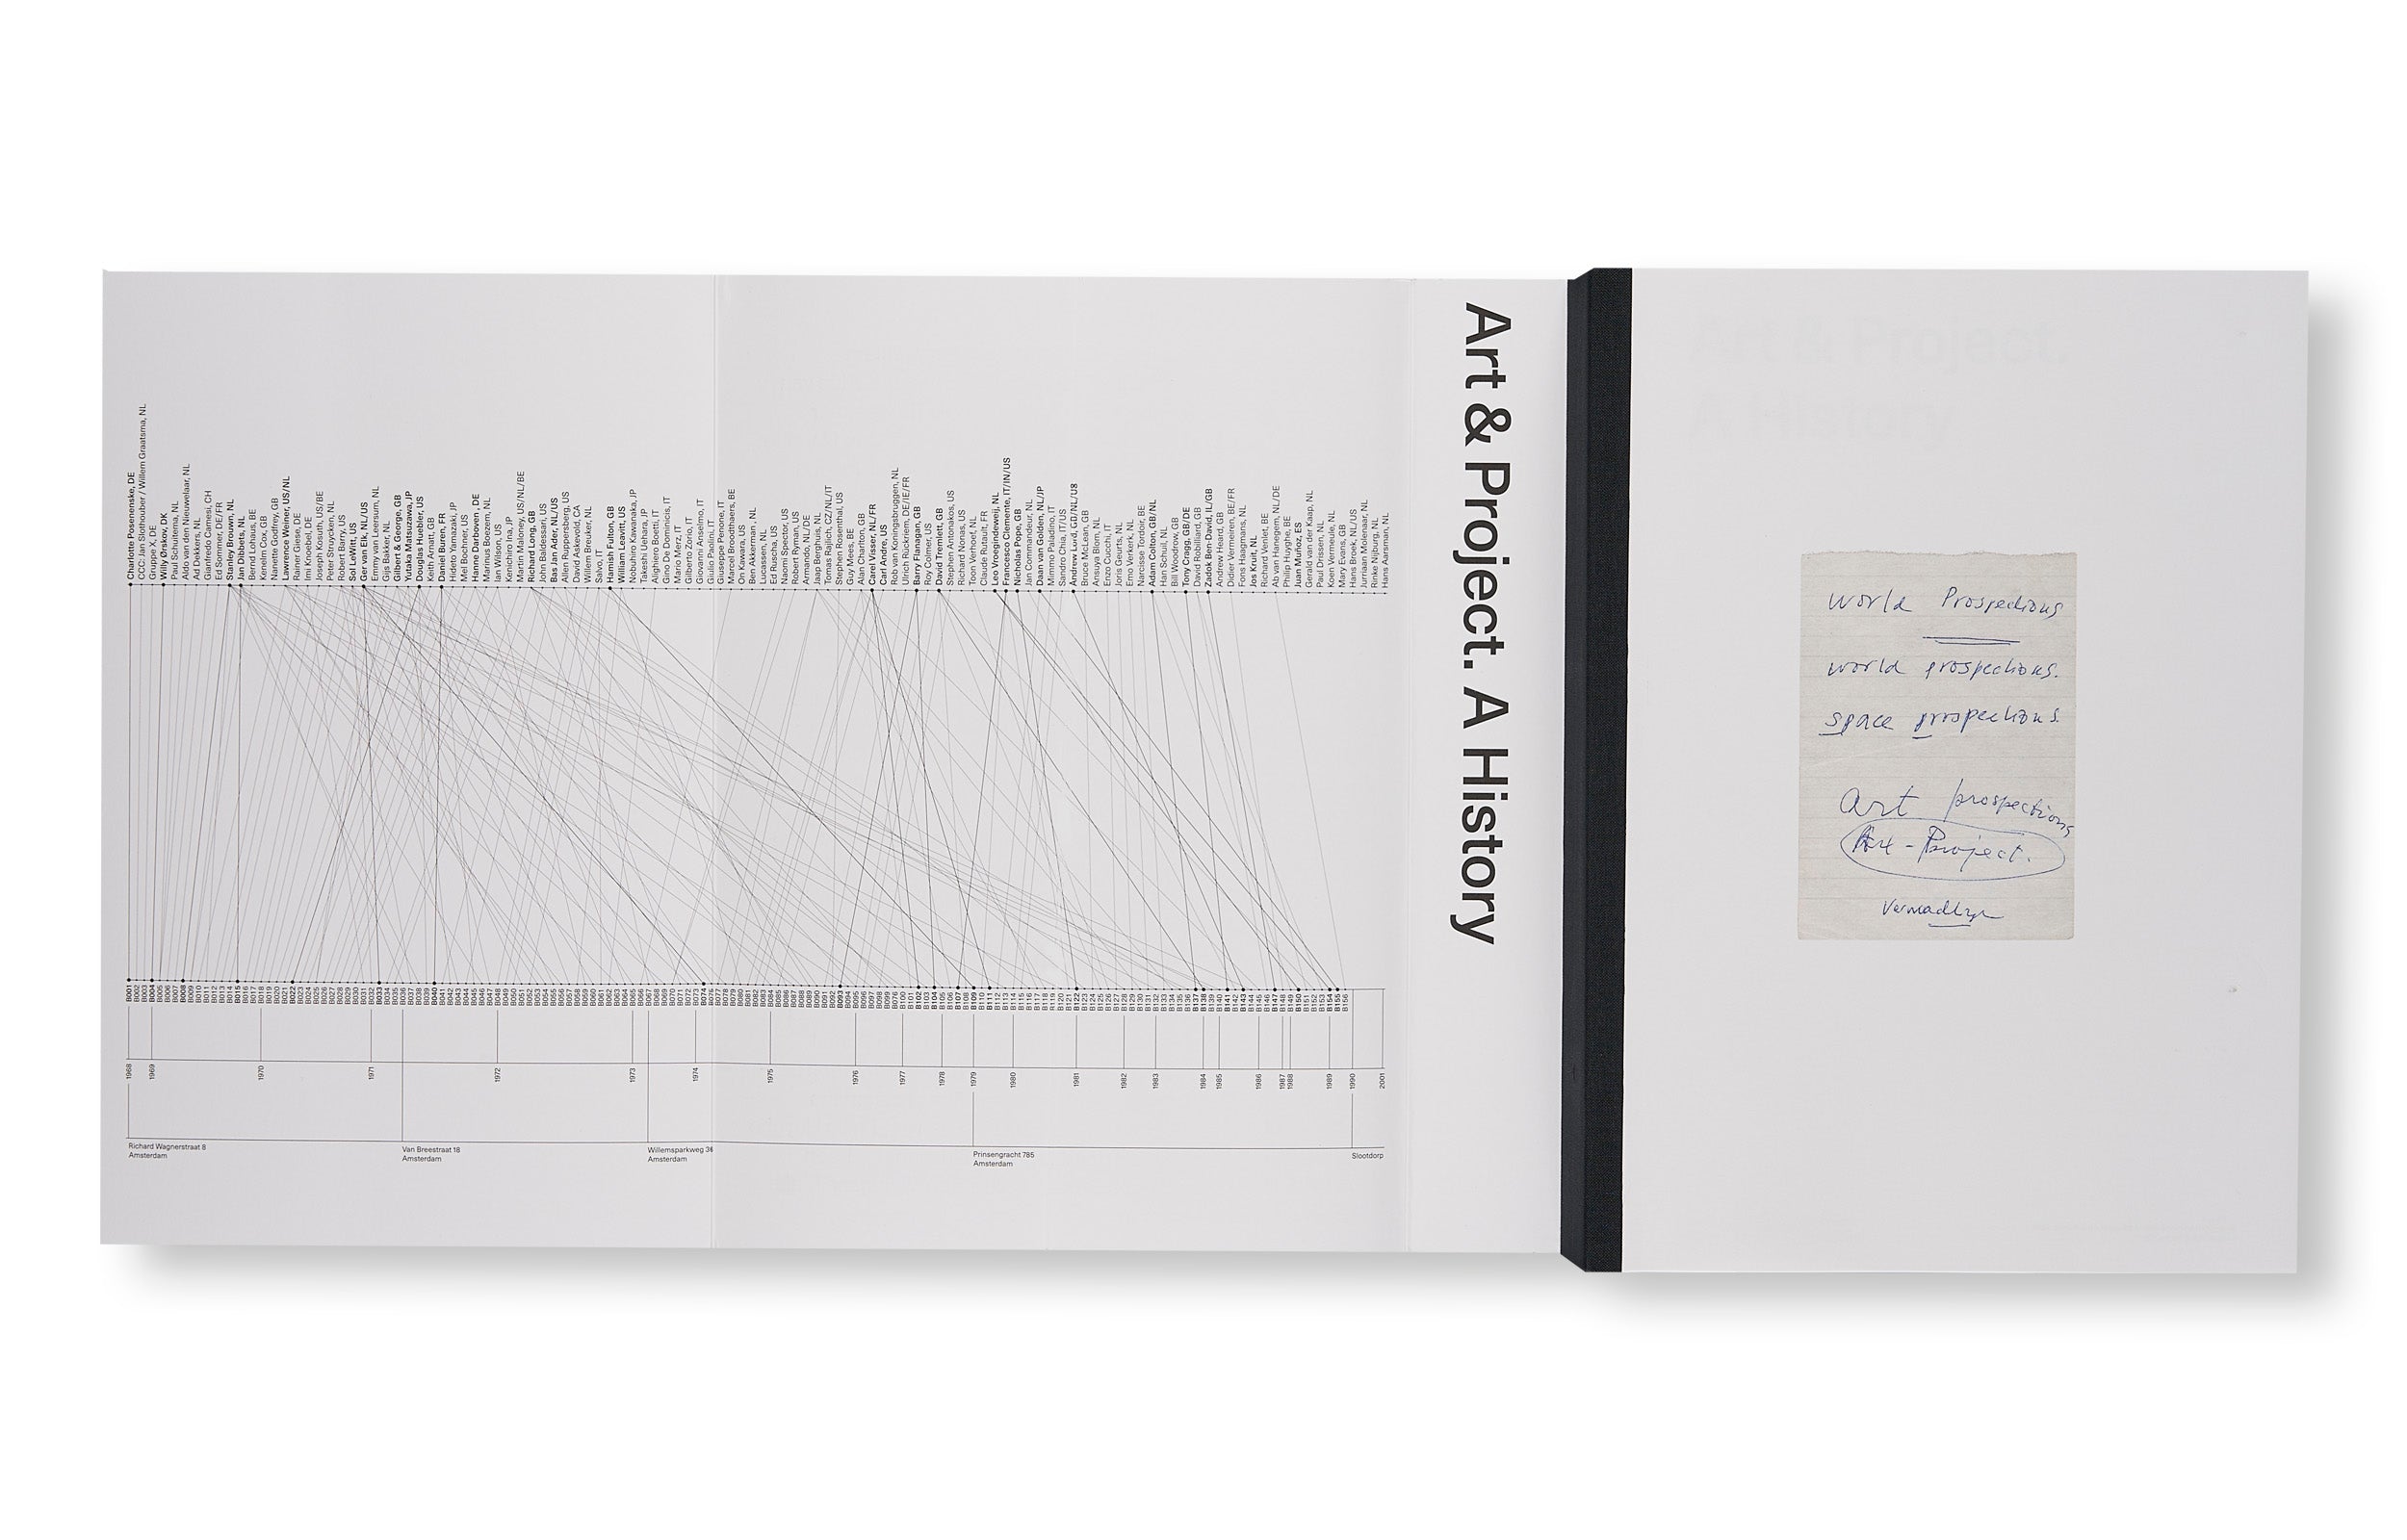 Charlotte Posenenske, DE
CCC: Jan Slothouber / Willem Graatsma, NL
Gruppe X, DE
Willy Ørskov, DK
Paul Schuitema, NL
Aldo van den Nieuwelaar, NL
Ad Dekkers, NL
Gianfredo Camesi, CH
Ed Sommer, DE/FR
Stanley Brouwn, NL
Jan Dibbets, NL
Bernd Lohaus, BE
Kenelm Cox, GB
Nanette Godfrey, GB
Lawrence Weiner, US/NL
Rainer Giese, DE
Imi Knoebel, DE
Joseph Kosuth, US/BE
Peter Struycken, NL
Robert Barry, US
Sol LeWitt, US
Ger van Elk, NL/US
Emmy van Leersum, NL
Gijs Bakker, NL
Gilbert & George, GB
Yutaka Matsuzawa, JP
Douglas Huebler, US
Keith Arnatt, GB
Daniel Buren, FR
Hideto Yamazaki, JP
Mel Bochner, US
Hanne Darboven , DE
Marinus Boezem, NL
Ian Wilson, US
Kenichiro Ina, JP
Martin Maloney, US/NL/BE
Richard Long, GB
John Baldessari, US
Bas Jan Ader, NL/US
Allen Ruppersberg, US
David Askevold, CA
Willem Breuker, NL
Salvo, IT
Hamish Fulton, GB
William Leavitt, US
Nobuhiro Kawanaka, JP
Takashi Uehara, JP
Alighiero Boetti, IT
Gino De Dominicis, IT
Mario Merz, IT
Gilberto Zorio, IT
Giovanni Anselmo, IT
Giulio Paolini, IT
Giuseppe Penone, IT
Marcel Broodthaers, BE
On Kawara, US
Ben Akkerman, NL
Lucassen, NL
Ed Ruscha, US
Naomi Spector, US
Robert Ryman, US
Armando, NL/DE
Jaap Berghuis, NL
Tomas Rajlich, CZ/NL/IT
Stephen Rosenthal, US
Guy Mees, BE
Alan Charlton, GB
Carel Visser, NL/FR
Carl Andre, US
Rob van Koningsbruggen, NL
Ulrich Rückriem, DE/IE/FR
Barry Flanagan, GB
Roy Colmer, US
David Tremlett, GB
Stephen Antonakos, US
Richard Nonas, US
Toon Verhoef, NL
Claude Rutault, FR
Leo Vroegindeweij, NL
Francesco Clemente, IT/IN/US
Nicholas Pope, GB
Jan Commandeur, NL
Daan van Golden, NL/JP
Mimmo Paladino, IT
Sandro Chia, IT/US
Andrew Lord, GD/NL/US
Bruce McLean, GB
Ansuya Blom, NL
Enzo Cucchi, IT
Joris Geurts, NL
Emo Verkerk, NL
Narcisse Tordoir, BE
Adam Colton, GB/NL
Han Schuil, NL
Bill Woodrow, GB
Tony Cragg, GB/DE
David Robilliard, GB
Zadok Ben-David, IL/GB
Andrew Heard, GB
Didier Vermeiren, BE/FR
Fons Haagmans, NL
Jos Kruit, NL
Richard Venlet, BE
Ab van Hanegem, NL/DE
Philip Huyghe, BE
Juan Muñoz, ES
Gerald van der Kaap, NL
Paul Drissen, NL
Koen Vermeule, NL
Mary Evans, GB
Hans Broek, NL/US
Jurriaan Molenaar, NL
Rinke Nijburg, NL
Hans Aarsman, NL
B001
B002
B003
B004
B005
B006
B007
B008
B009
B010
B011
B012
B013
B014
B015
B016
B017
B018
B019
B020
B021
B022
B023
B024
B025
B026
B027
B028
B029
B030
B031
B032
B033
B034
B035
B036
B037
B038
B039
B040
B041
B042
B043
B044
B045
B046
B047
B048
B049
B050
B051
B052
B053
B054
B055
B056
B057
B058
B059
B060
B061
B062
B063
B064
B065
B066
B067
B068
B069
B070
B071
B072
B073
B074
B076
B077
B078
B079
B080
B081
B082
B083
B084
B085
B086
B087
B088
B089
B090
B091
B092
B093
B094
B095
B096
B097
B098
B099
B076
B100
B101
B102
B103
B104
B105
B106
B107
B108
B109
B110
B111
B112
B113
B114
B115
B116
B117
B118
B119
B120
B121
B122
B123
B124
B125
B126
B127
B128
B129
B130
B131
B132
B133
B134
B135
B136
B137
B138
B139
B140
B141
B142
B143
B144
B145
B146
B147
B148
B149
B150
B151
B152
B153
B154
B155
B156
1968
1969
1970
1971
1972
1973
1974
1975
1976
1977
1978
1979
1980
1981
1982
1983
1984
1985
1986
1987
1988
1989
1990
2001
Richard Wagnerstraat 8
Amsterdam
Van Breestraat 18
Amsterdam
Willemsparkweg 36
Amsterdam
Prinsengracht 785
Amsterdam
Slootdorp
Art & Project. A History
Art & Project.
A History
World Prospections
world prospections.
space prospections.
Art prospections
Art - Project.